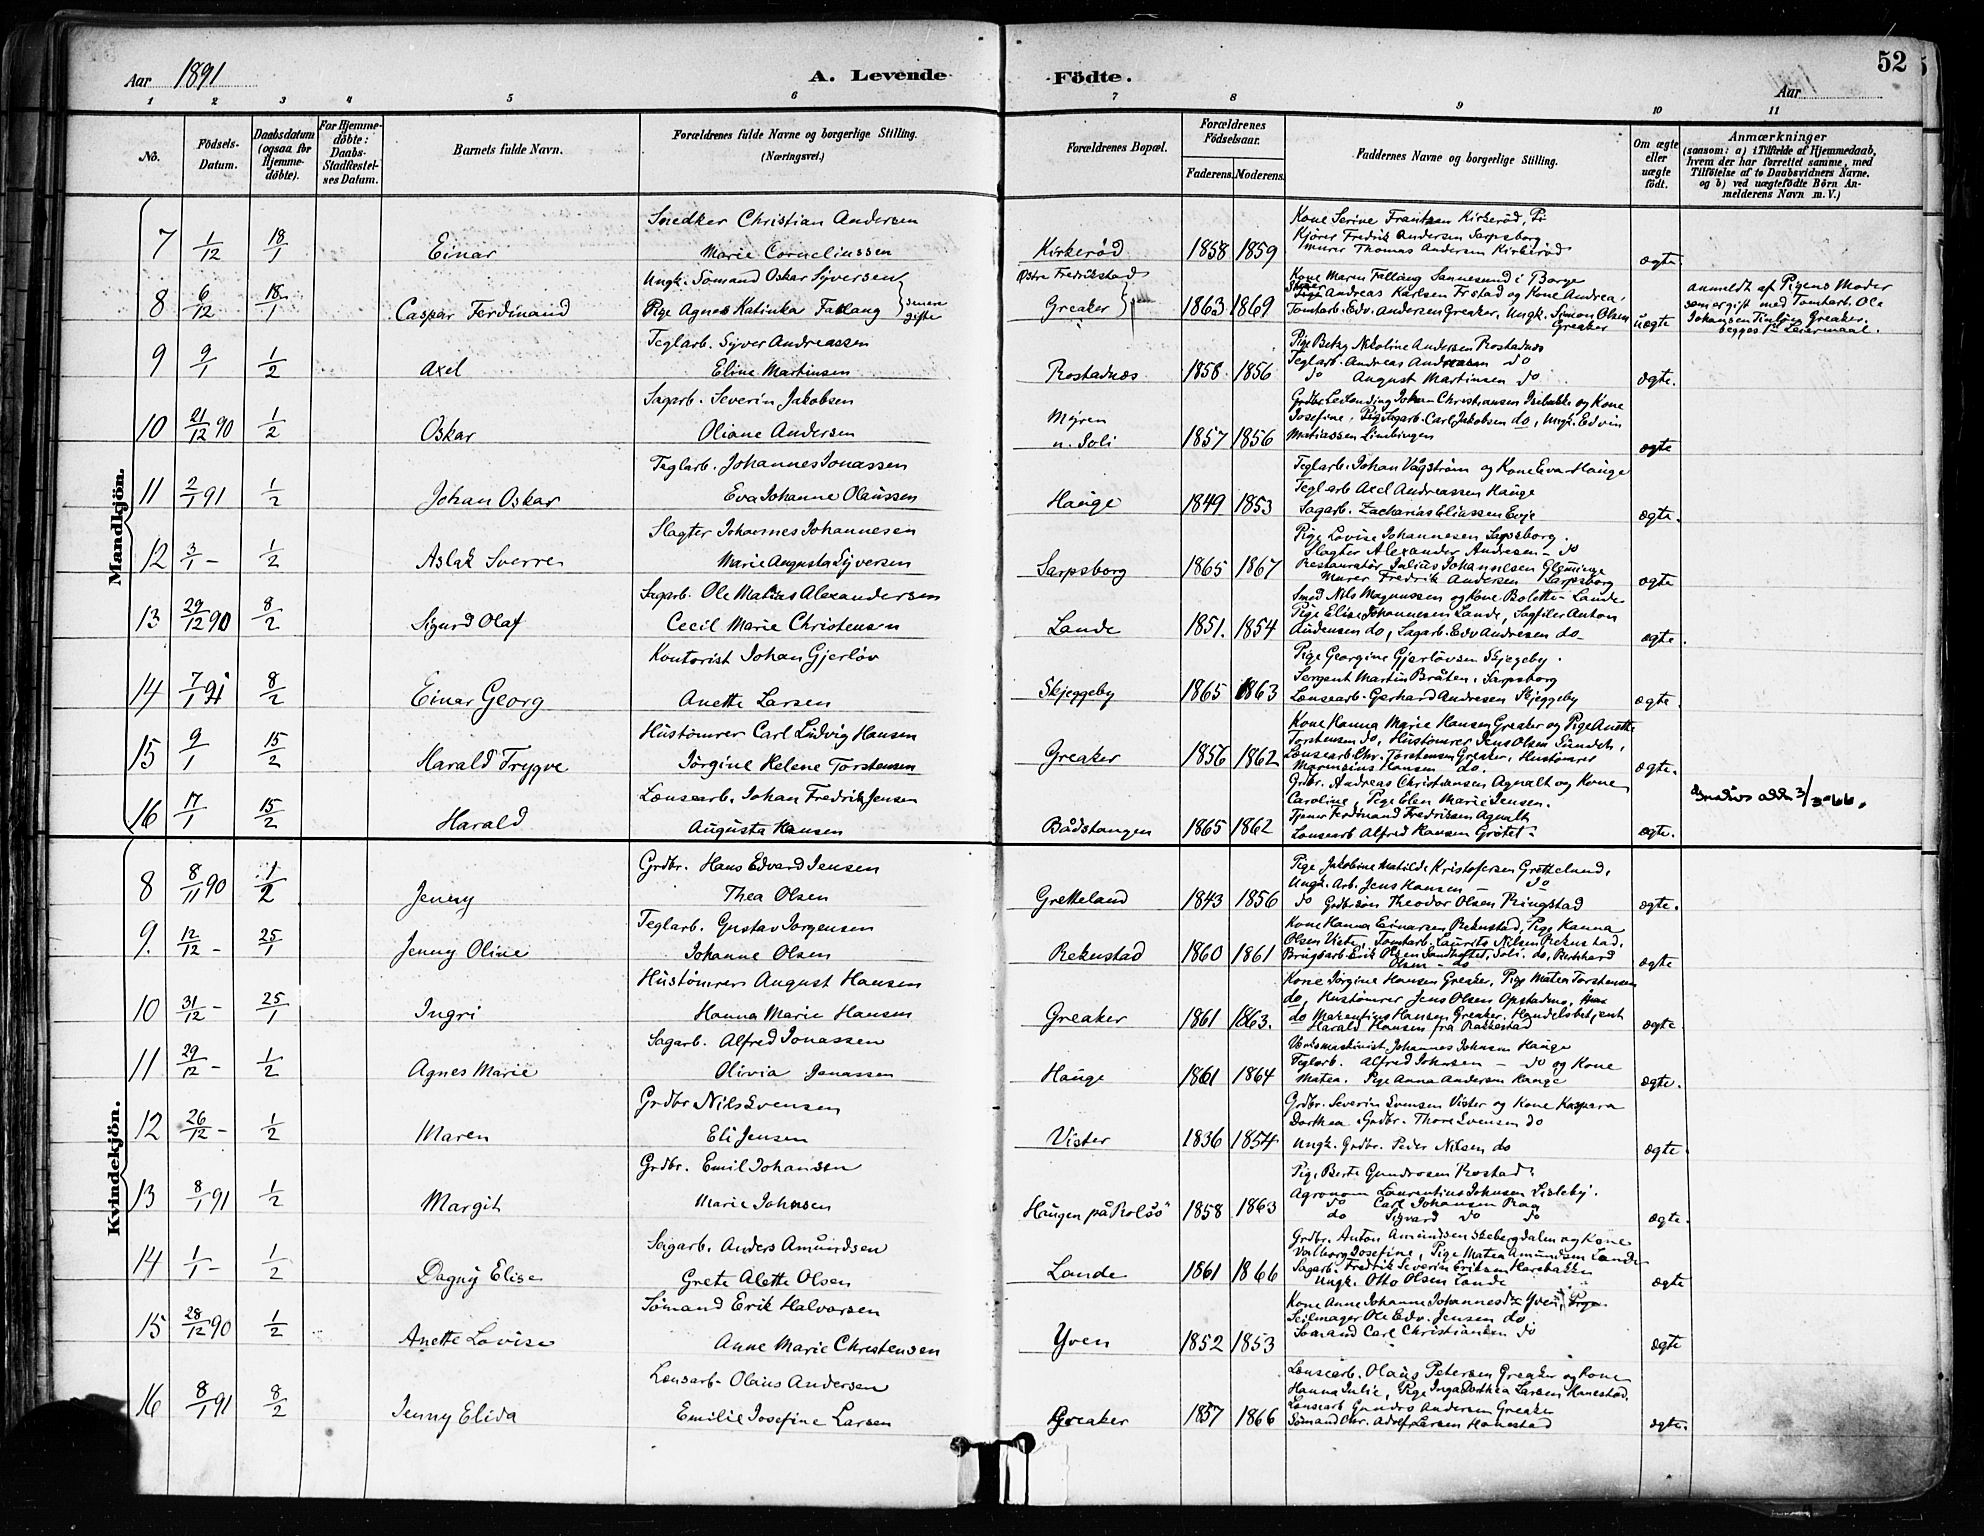 Aar 1891
A. Levende Födte.
52
Aar
1 2 3 4 5 6 7 8 9 10 11
No.
Födsels-Datum.
Daabsdatum (ogsaa for Hjemme-döbte).
For Hjemme-döbte: Daabs-Stadfestel-ses Datum.
Barnets fulde Navn.
Forældrenes fulde Navne og borgerlige Stilling. (Næringsvei.)
Forældrenes Bopæl.
Forældrenes Födselsaar.
Faderens. Moderens.
Faddernes Navne og borgerlige Stilling.
Om ægte eller uægte födt.
Anmærkninger
(saasom: a) i Tilfælde af Hjemmedaab,
hvem der har forrettet samme, med
Tilföielse af to Daabsvidners Navne.
og b) ved uægtefödte Börn An-
melderens Navn m.V.)
Mandkjön.
7 1/12 18/1 Einar
Snedker Christian Andersen
Marie Corneliussen
Kirkeröd 1858 1859
Kone Serine Frantzen Kirkeröd, Pi
Kjörer Fredrik Andersen Sarpsborg
Murer Thomas Andersen Kirkeröd
ægte
8 6/12 18/1 Caspar Ferdinand
Ungk. Sömand Oskar Syversen
Pige Agnes Katinka Fallang } senere gifte
Östre Fredrikstad
Greaker 1863 1869
Kone Maren Fallang Sannesund i Borge
Andreas Karlsen Frstad og Kone Andrea,
Tomtarb. Edv. Andersen Greaker, Ungk. Simon Olsen
Greaker
uægte
anmeldt af Pigens Moder
som er gift med Tomtarb. Ole
Johansen Greaker.
begges 1ste Leiermaal.
9 9/1 1/2 Axel
Teglarb. Syver Andreassen
Eline Martinsen
Rostadnæs 1858 1856
Pige Betzy Nikoline Andersen Rostadnæs
Teglarb. Andreas Andreasen do
do August Martinsen do
ægte.
10 21/12 90 1/2 Oskar
Sagarb. Severin Jakobsen
Oliane Andersen
Myren
u. Soli 1857 1856
Johan Christiansen Isebakke og Kone
Josefine, Pige Sagarb. Carl Jakobsen do, Ungk. Edvin
Matiassen Limbingen
ægte
11 2/1 91 1/2 Johan Oskar
Teglarb. Johannes Jonassen
Eva Johanne Olaussen
Hauge 1849 1853
Teglarb. Johan Vågström og Kone Eva Hauge
Teglarb Axel Andreassen Hauge
Sagarb. Zacharias Eliassen Evje
ægte.
12 3/1 - 1/2 Aslak Sverre
Slagter Johannes Johannesen
Marie Augusta Syversen
Sarpsborg 1865 1867
Pige Lovise Johannesen Sarpsborg.
Slagter Alexander Andresen - do
Restauratör Julius Johannesen Glemminge
Murer Fredrik Andersen Sarpsborg
ægte
13 29/12 90 8/2 Sigurd Olaf
Sagarb. Ole Matias Alexandersen
Cecil Marie Christensen
Lande 1851. 1854
Smed Nils Magnussen og Kone Bolette - Lande
Pige Elise Johannesen Lande, Sagfiler Anton
Andersen do, Sagarb. Edv Andresen do
ægte.
14 7/1 91 8/2 Einar Georg
Kontorist Johan Gjerlöv
Anette Larsen
Skjeggeby 1865 1863
Pige Georgine Gjerlövsen Skjegeby.
Sergent Martin Bråten, Sarpsborg
Lensearb. Gerhard Andresen Skjeggeby
ægte.
15 9/1 15/2 Harald Trygve
Hustömrer Carl Ludvig Hansen
Jörgine Helene Torstensen
Greaker 1856 1862
Kone Hanna Marie Hansen Greaker og Pige Anette
Torstensen do, Hustömrer Jens Olsen Sundet,
Lensearb. Chr. Torstensen Greaker, Hustömrer
Marensius Hansen do.
ægte.
16 17/1 15/2 Harald
Lensearb. Johan Fredrik Jensen
Augusta Hansen
Bådstangen 1865 1862
Grdbr. Andreas Christiansen Agnalt og Kone
Caroline, Pige Elen Marie Jensen.
Tjener Ferdinand Fredriksen Agnalt
Lensearb Alfred Hansen Grötet.
ægte.
Kvindekjön.
8 8/11 90 1/2 Jenny
Grdbr. Hans Edvard Jensen
Thea Olsen
Gretteland 1843 1856
Pige Jakobine Matilde Kristofersen Grettelund,
Ungk. Arb. Jens Hansen - do
do Grdbrsön Theodor Olsen Ringstad
ægte.
9. 12/12 - 25/1 Jenny Oline
Teglarb. Gustav Jörgensen
Johanne Olsen
Rekustad 1860 1861
Kone Hanna Einarsen Rekustad, Pige Hanna
Olsen Vister, Tomtarb. Laurits Nilsen Rekustad,
Brugsarb. Erik Olsen Sandtoftet, Soli. do, Bernhard
Olsen - do
ægte
10 31/12 - 25/1 Ingri
Hustömrer August Hansen
Hanna Marie Hansen
Greaker 1861 1863.
Kone Jörgine Hansen Greaker, Pige Matea Torstensen
do, Hustömrer Jens Olsen Opstadnæs,
do Marentius Hansen Greaker. Handelsbetjent
Harald Hansen fra Rakkestad
ægte.
11 29/12 - 1/2 Agnes Marie
Sagarb. Alfred Jonassen
Olivia Jonassen
Hauge 1861 1864
Johannes Johnsen Hauge
Teglarb. Alfred Johnsen - do og Kone
Matea. Pige Anna Andersen Hauge
ægte.
12 26/12 - 1/2 Maren
Grdbr Nils Svensen
Eli Jensen
Vister 1836 1854
Grdbr. Severin Svensen Vister og Kone Kaspara
Dorthea, Grdbr. Thore Svensen do
Ungk. Grdbr. Peder Nilsen do
ægte.
13 8/1 91 1/2 Margit
Grdbr. Emil Johansen
Marie Johnsen
Haugen på Rolsö 1858 1863
Pige Berte Gundrosen Rostad.
Agronom Laurentius Johnsen Lisleby.
do Carl Johansen Raa
do Sigvard do do
ægte.
14 1/1 - 1/2 Dagny Elise
Sagarb. Anders Amundsen
Grete Alette Olsen
Lande 1861 1866
Grdbr. Anton Amundsen Skebergdalen og Kone
Valborg Josefine, Pige Matea Amundsen Lande
Sagarb. Fredrik Severin Eriksen Harebakken
Ungk. Otto Olsen Lande
ægte
15 28/12 90 1/2 Anette Lovise
Sömand Erik Halvorsen
Anne Marie Christensen
Yven 1852 1853
Kone Anne Johanne Johannesdtr Yven, Pige
Seilmager Ole Edv. Jensen do
Sömand Carl Christiansen do
ægte
16 8/1 91 8/2 Jenny Elida
Lensarb. Olaus Andersen
Emilie Josefine Larsen
Greaker 1857 1866
Lensearb. Olaus Petersen Greaker og Kone
Hanna Julie, Pige Inga Dorthea Larsen Hanestad.
Lensearb Gundro Andersen Greaker
Sömand Chr. Adolf Larsen Hanestad
ægte.